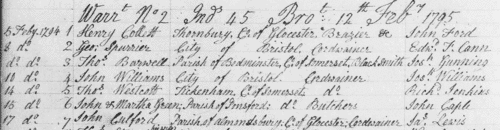 Warrt. No. 2 Ind. 45 Brot. 12th Feby. 1795
5 Feby. 1794 1 Henry Collett Thornbury, C. of Glocester Brazier & John Ford
8 do. 2 Geo: Spurrier City of Bristol Cordwainer Edwd. T. Cann
do. do. 3 Thos. Barwell Parish of Bedminster, C. of Somerset, Black Smith Jos: Gunning
10 do. 4 John Williams City of Bristol Cordwainer Jos: Williams
14 do. 5 Thos. Westcott Tickenham, C. of Somerset do. Richd. Jenkins
16 do. 6 John & Martha Green; Parish of do. Butchers John Caple
17 do. 7 John Parish of almondsbury; C. of Glocester; Cordwainer Jas. Lewis